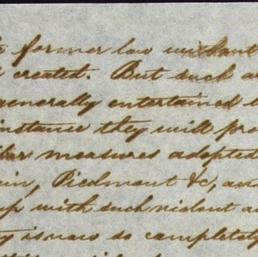 former law without
created. But such a
generally entertained
instance they will pro
measures adopted
in, Piedmont &c, and
up with such violent a
is now so completely